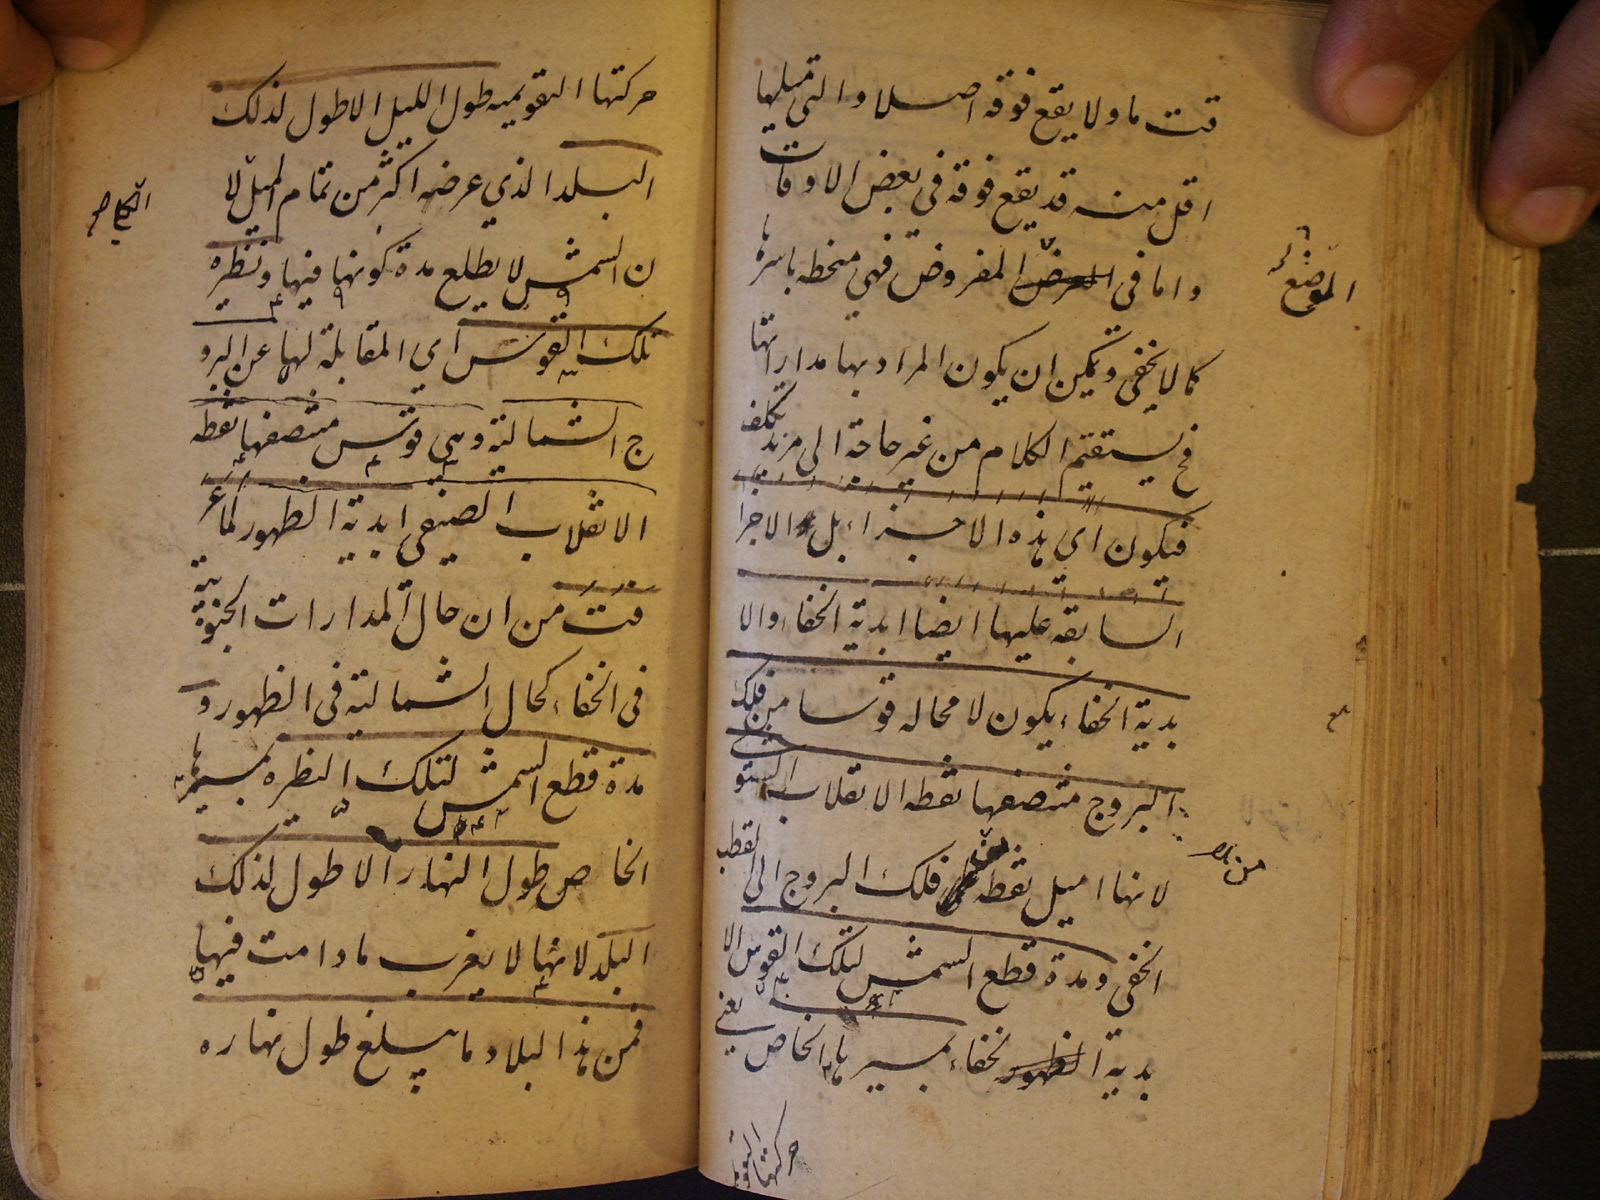 قت ما ولا يقع فوقه اصلا والتي ميلها
اقل منه قد يقع فوقه في بعض الاوقات
واما في العرض المفروض فهي منحطه باسرها
الموضع
كما لا يخفى ويمكن ان يكون المراد بها مداراتها
فح يستقيم الكلام من غير حاجة الى مزيد تكلف
فيكون اي هذه الاجزاء بل الاجزا
السابقه عليها ايضا ابدية الخفاء والا
بدية الخفاء يكون لا محاله قوسا من فلك
البروج منتصفها نقطه الانقلاب الشتوي
لانها اميل نقطه فلك البروج الى القطب
من
الخفى ومدة قطع الشمس لتلك القوس الا
بدية الظهور لخفاء بمسيرها الخاص يعني
حركتها التقو
حركتها التقويميه طول الليل الاطول لذلك
البلد الذي عرضه اكثر من تمام الميل لا
ن الشمس لا يطلع مدة كونها فيها ونظيره
تلك القوس اي المقابلة لها عن البرو
ج الشمالية وهي قوس منتصفها نقطه
الانقلاب الصيفي ابدية الظهور لما عر
فت من ان حال المدارات الجنوبية
في الخفاء كحال الشمالية في الظهور و
مدة قطع الشمس لتلك النظيره بمسيرها
الخاص طول النهار الاطول لذلك
البلد لانها لا يغرب ما دامت فيها
فمن هذا البلاد ما يبلغ طول نهاره